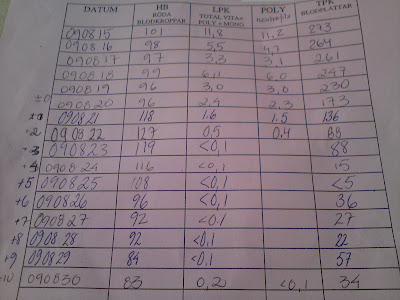 DATUM HB RÖDA BLODKROPPAR LPK TOTAL VITA= POLY + MONO POLY TPK BLODPLATTAR
090815 101 11,8 11,2 273
090816 98 5,5 4,7 264
090817 97 3,3 3,1 261
090818 99 6,11 6,0 247
090819 96 3,0 3,0 230
±0 090820 96 2,4 2,3 173
090821 118 1.6 1.5 136
+2 090822 127 0,5 0.4
+3 090823 129 <0,1 88
+4 090824 116 <0,1 15
+5 090825 108 <0,1 <5
+6 090826 96 <0,1 36
+7 090827 92 <0.1 27
+8 090828 92 <0.1 22
+9 090829 84 <0.1 57
+10 090830 83 0,20 <0,1 34